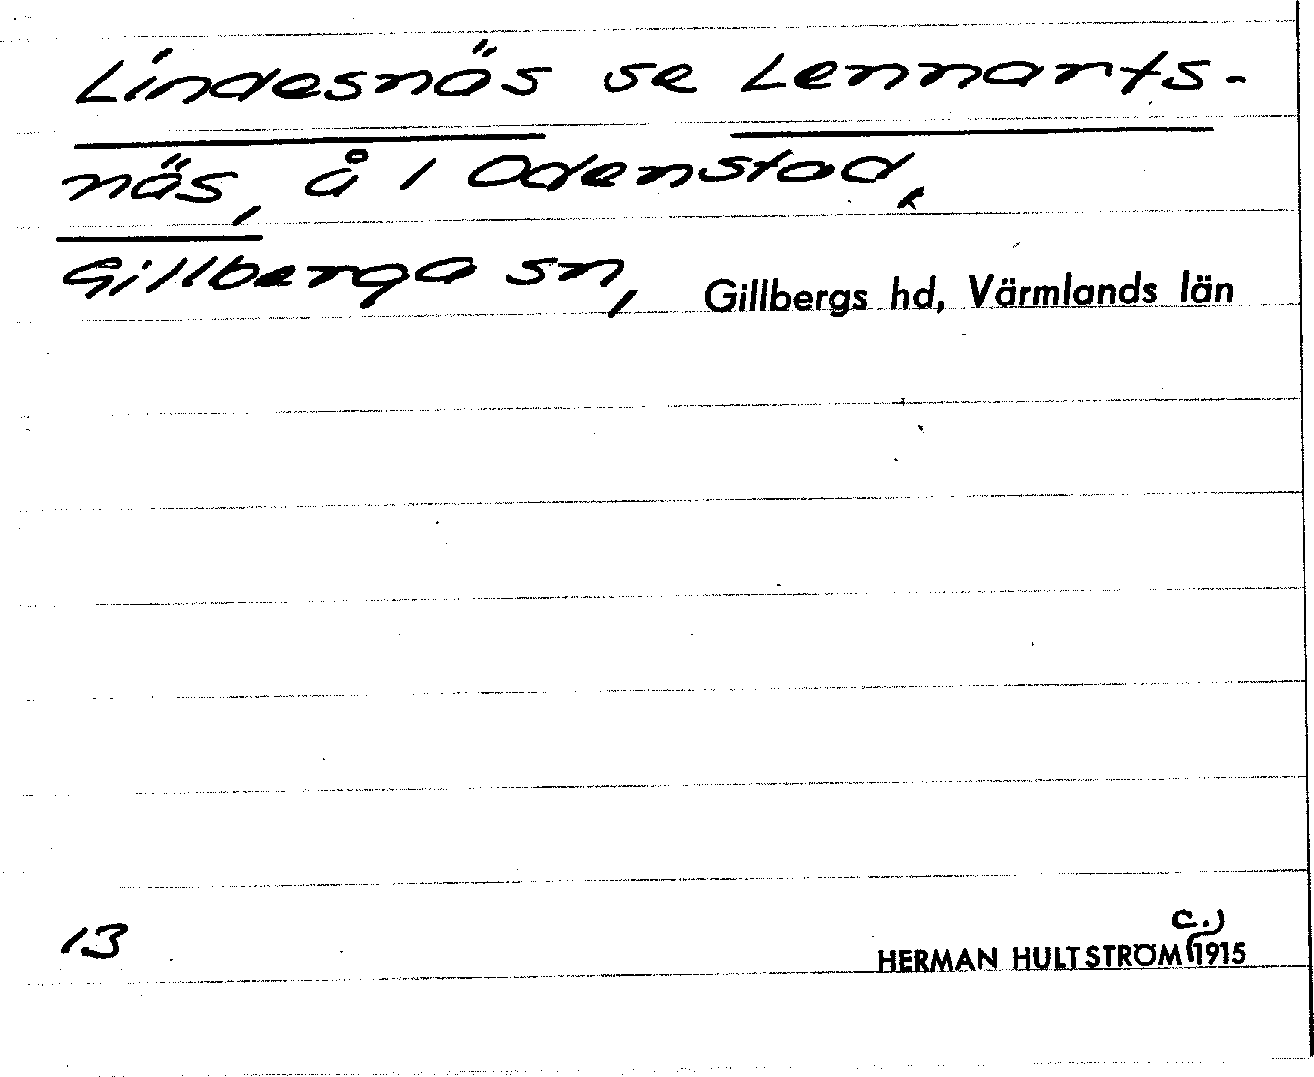 Lindesnäs se Lennarts-
näs, å i Odenstad,
Gillberga sn, Gillbergs hd, Värmlands län
13
c.)
HERMAN HULTSTRÖM 1915